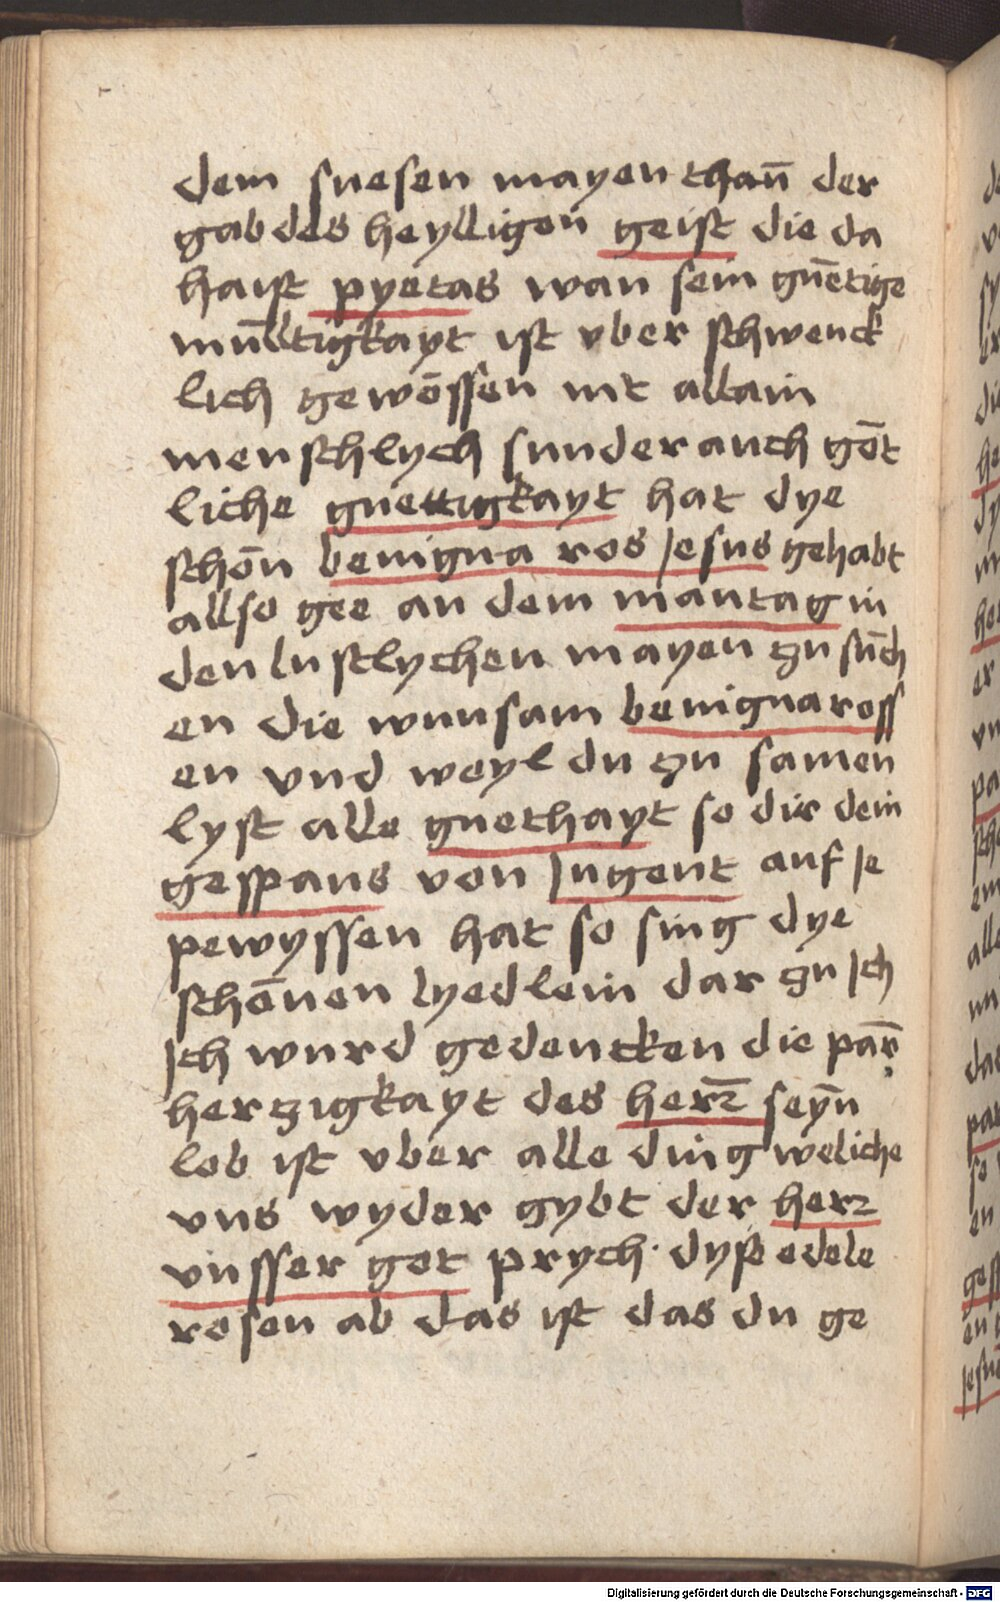 dem suesen mayen thaū der
gab des heylligen geist die da
haist pyetas wan sein gūetige
mūlltigkayt ist vber schwenck
lich gewōssen nit allain
menschlych sunder auch gōt
liche guettigkayt hat dye
schōn benigna ros Jesus gehabt
allso gee an dem mantag in
den lustlychen mayen zu sūch
en die wunsam benigna ross
en vnd weyl du zu samen
lyst alle guethayt so dir dein
gespans von Jugent auf Je
pewyssen hat so sing dye
schōnen lyedlein dar zu Ich
Ich wurd gedencken die pār
herzigkayt des herr̄ seȳn
lob ist vber alle ding weliche
vns wyder gybt der herr
vnsser got prych dyß edele
rosen ab das ist das du ge
Digitalisierung gefördert durch die Deutsche Forschungsgemeinschaft - DFG